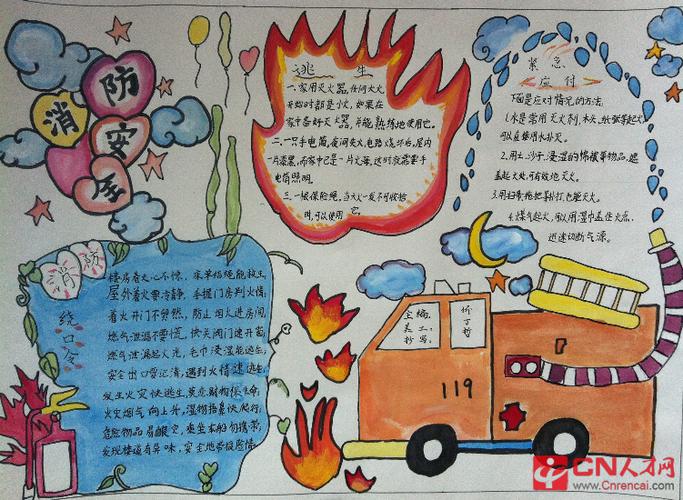 消防安全
逃生
一、家用灭火器,任何大火
开始时都是小火,如果在
家中备好灭火器,并能熟练地使用它。
二、一只手电筒,夜间失火,电路烧坏后,屋内
一片漆黑,而家中已是一片火海,这时就需要手
电筒照明。
三、一根保险绳,当大火一发不可收拾
时,可以使用它。
紧急
应付
下面是应对情况的方法:
1.水是常用灭火剂,木头,纸张等起火,
可以直接用水扑灭。
2.用土,沙子,浸湿的棉被等物品,遮
盖起火处,可有效地灭火。
3.用扫帚,拖把等扑打,也能灭火。
4.煤气起火,可以用湿巾盖住火点,
迅速切断气源。
消防
绕口令
楼房着火心不惊,床单结绳能救生
屋外着火要冷静,手摸门房判火情
着火开门不贸然,防止烟火进房间
燃气泄漏不要慌,快关阀门速开窗
燃气泄漏起火光,毛巾浸湿能
安全出口要记清,遇到火情速逃
发生火灾快逃生,莫恋财物保生命
火灾烟气向上升,湿物捂鼻快爬行
危险物品易酿灾,乘坐本船勿携带
发现楼道有异味,安全地带报险情
主编:
美工:
抄写:
119
CN人才网
Cnrencai.com